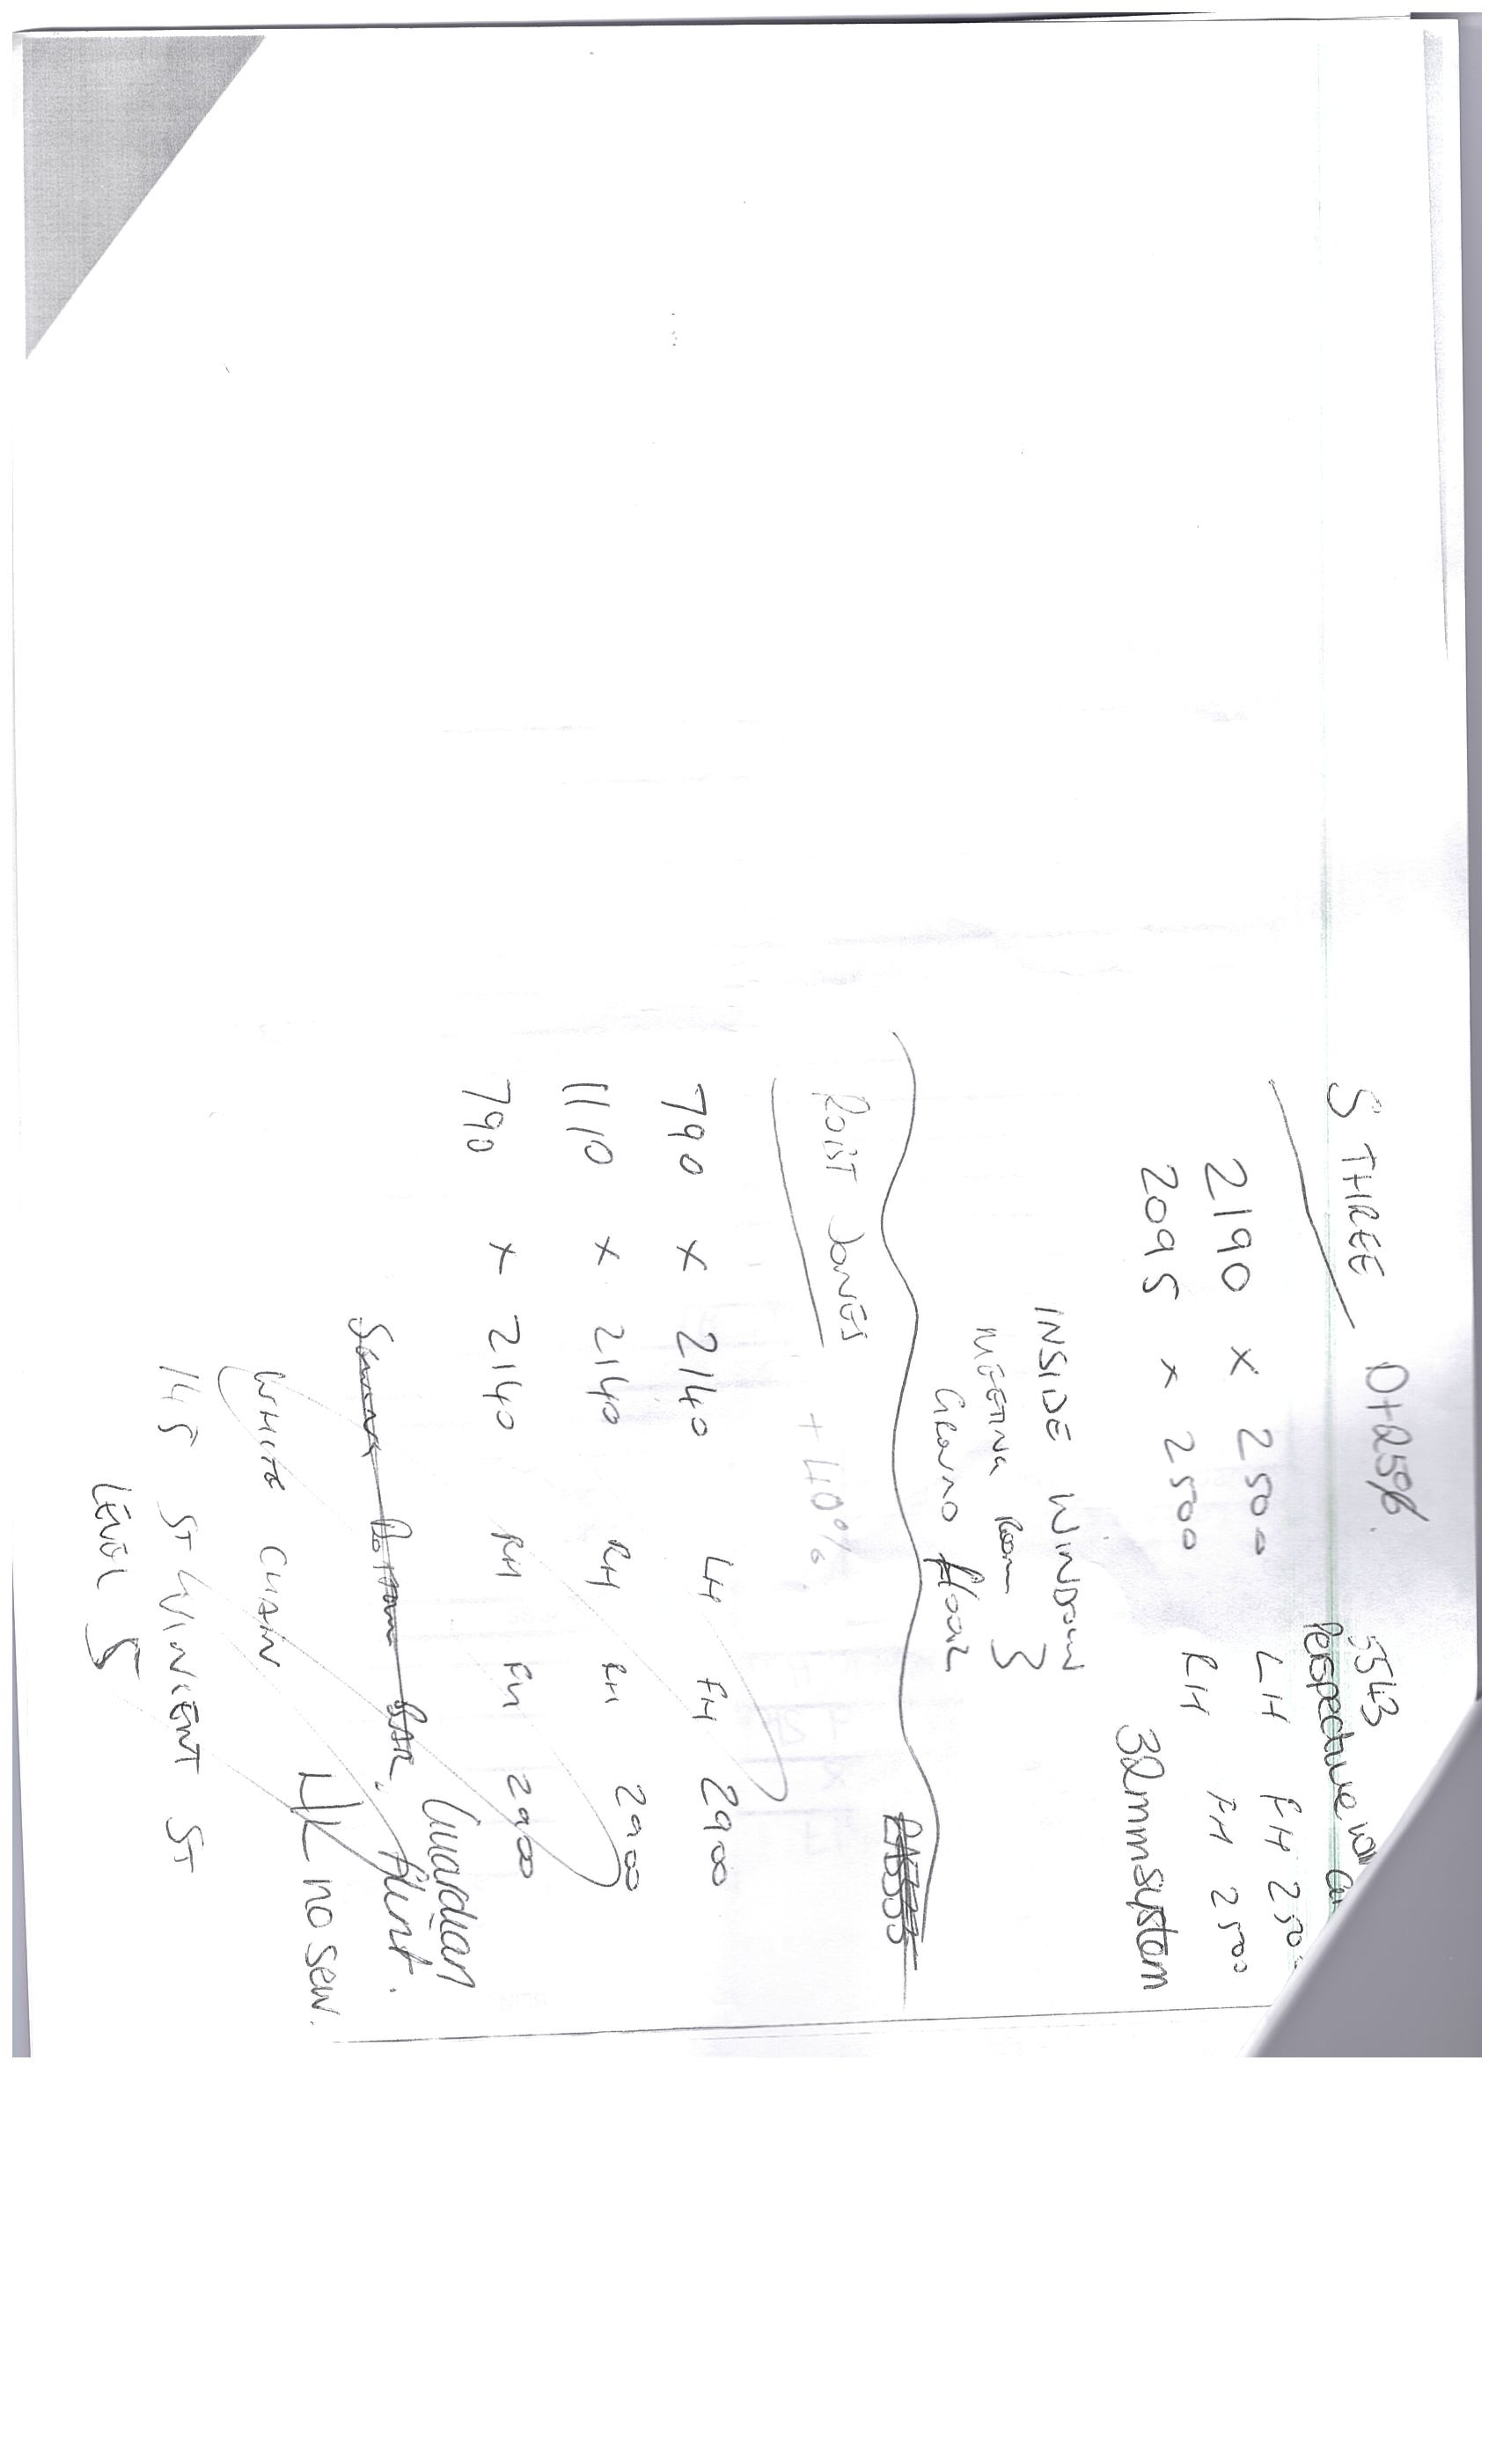 S THREE D+25%. 5543
Perspective
2190 x 2500 LH FH 250
2095 x 2500 RH FH 2500
32mm system
INSIDE WINDOW
MEETING Room 3
GROUND floor
ROIST JONES
+40%.
790 x 2140 LH FH 2900
1110 x 2140 RH FH 2900
790 x 2140 RH FH 2900
Guardian
Bottom BAR. Flint.
H/L no sew.
WHITE CHAIN
145 ST VINCENT ST
LEVEL 5